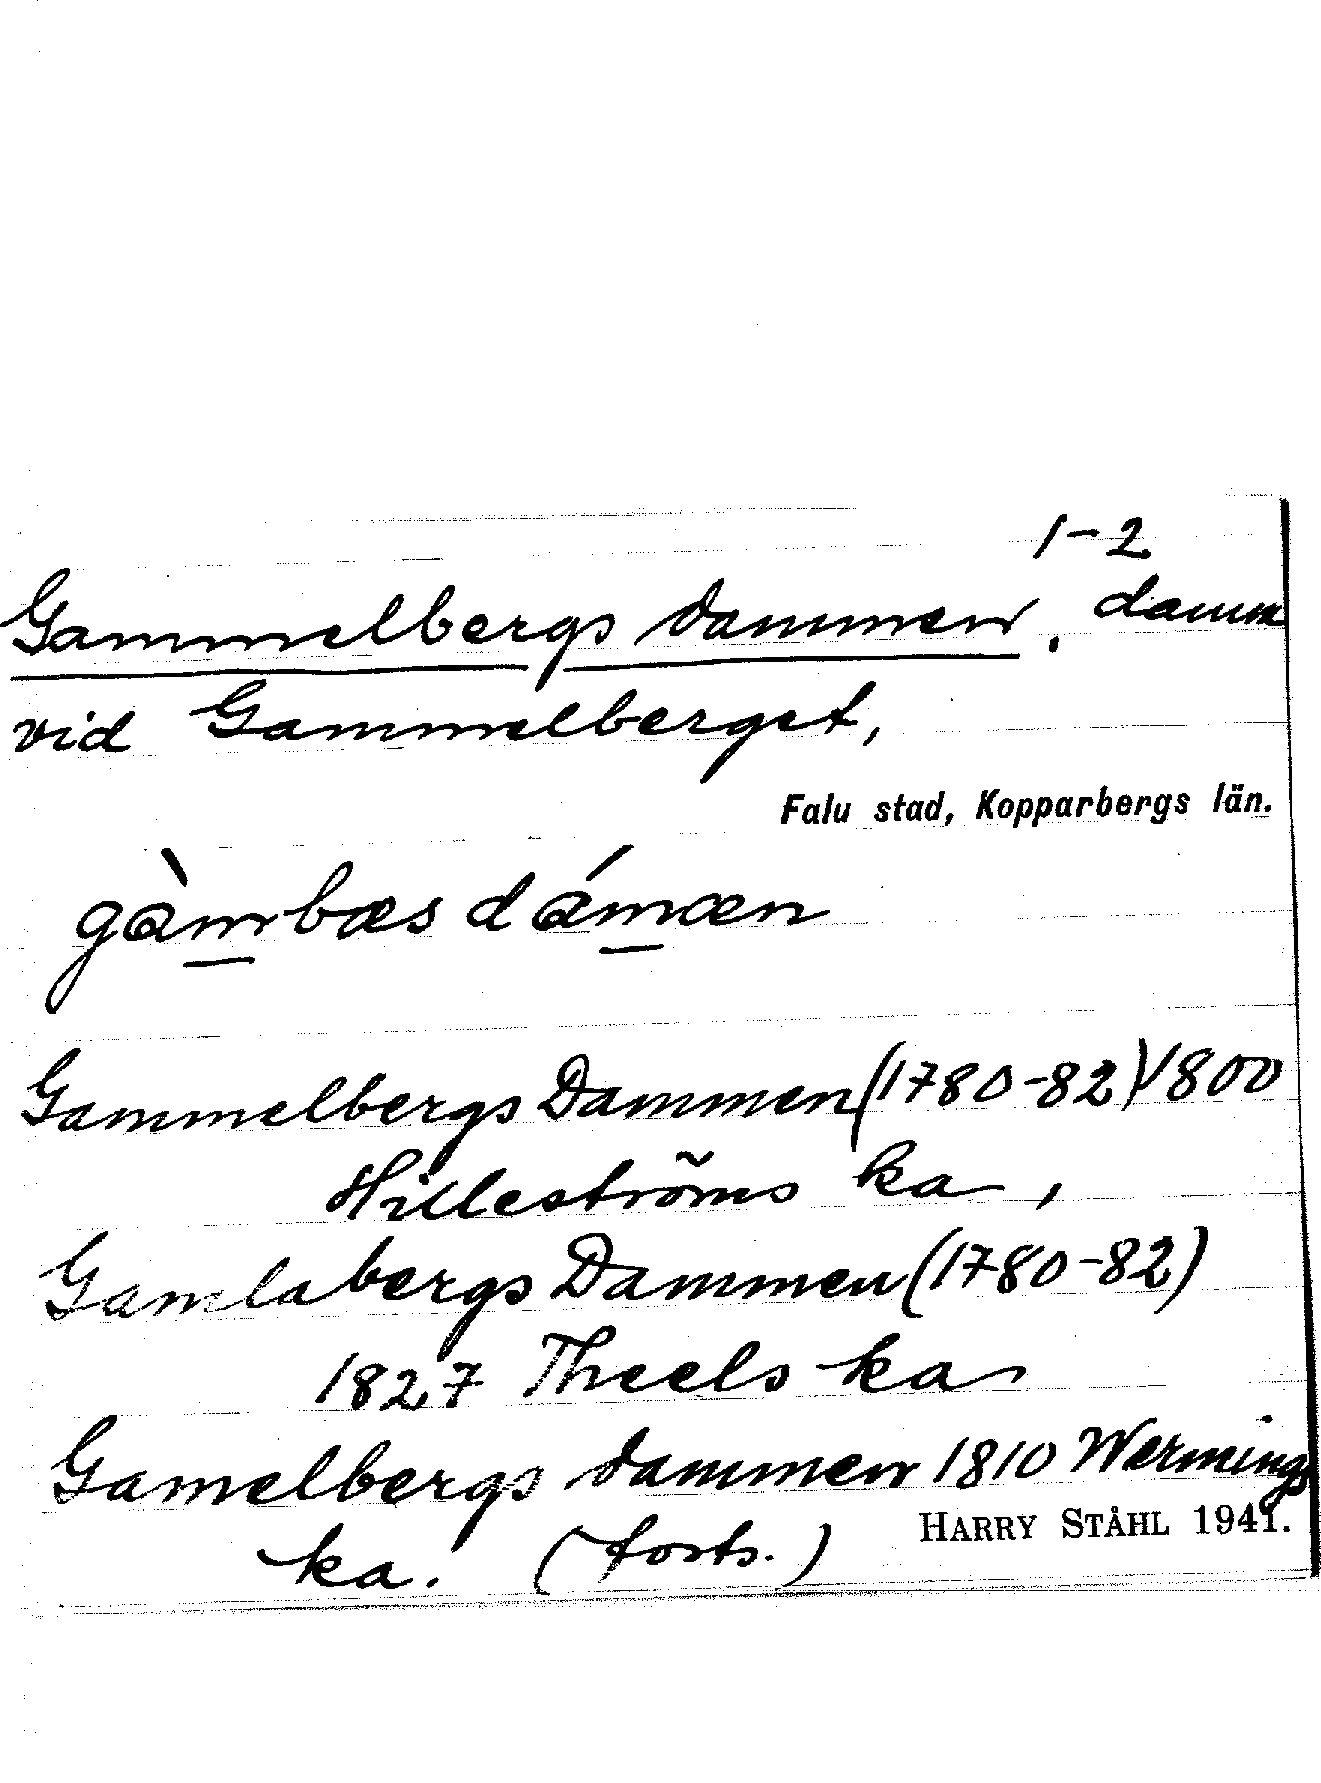 1-2
Gammelbergsdammen, damm
vid Gammelberget,
Falu stad, Kopparbergs län.
gàm̲bæsdám̲æn
Gammelbergs Dammen (1780-82) 1800
Hilleströms ka,
Gamlabergs Dammen (1780-82)
1827 Theels ka
Gamelbergs dammen 1810 Wermings
ka. (forts.)
HARRY STÅHL 1941.